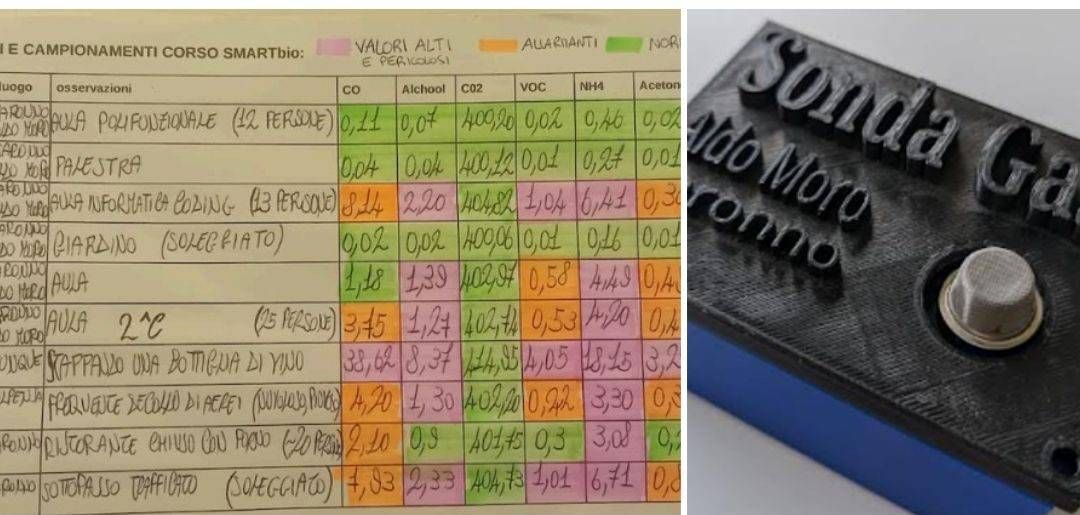 I E CAMPIONAMENTI CORSO SMARTbio: VALORI ALTI E PERICOLOSI ALLARMANTI NOR
luogo osservazioni CO Alchool C02 VOC NH4 Aceton
AULA POLIFUNZIONALE (12 PERSONE) 0,11 0,07 400,20 0,02 0,46 0,02
PALESTRA 0,04 0,04 400,12 0,01 0,27 0,01
AULA INFORMATICA CODING (13 PERSONE) 8,14 2,20 404,82 1,04 6,41 0,3
GIARDINO (SOLEGGIATO) 0,02 0,02 400,06 0,01 0,16 0,01
AULA 1,18 1,39 402,97 0,58 4,49 0,4
AULA 2^C (25 PERSONE) 3,75 1,27 402,74 0,53 4,20 0,4
STAPPANDO UNA BOTTIGLIA DI VINO 38,62 8,37 414,95 4,05 18,15 3,2
FREQUENTE DECOLLO DI AEREI 4,20 1,30 402,20 3,30
RISTORANTE CHIUSO CON FORNO (~20 PERSONE) 2,10 0,9 401,75 0,3 3,08 0,2
SOTTOPASSO TRAFFICATO (SOLEGGIATO) 7,93 2,33 404,73 1,01 6,71 0,8
Sonda Ga
Aldo Moro
ronno